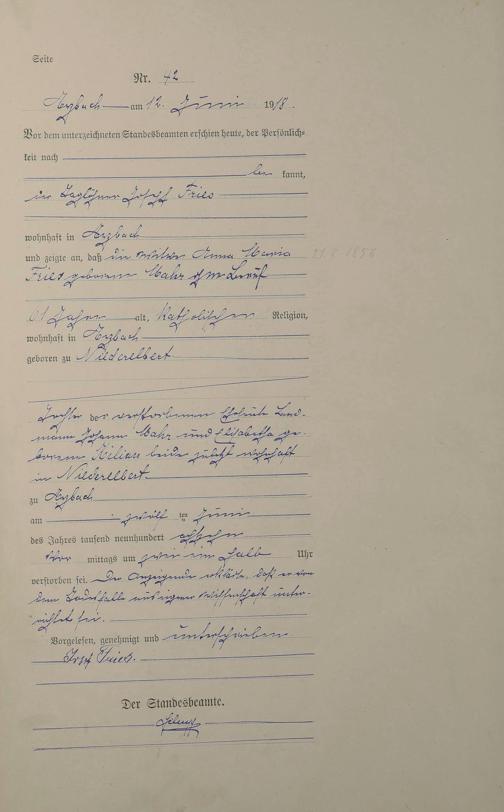 Seite
Nr. 42
Arzbach am 12. Juni 1918.
Vor dem unterzeichneten Standesbeamten erschien heute, der Persönlich-
keit nach
be kannt,
der Taglöhner Josef Fries
wohnhaft in Arzbach
und zeigte an, daß die Witwe Anna Maria
Fries geborene Mahr ohne Beruf
61 Jahre alt, katholischer Religion,
wohnhaft in Arzbach
geboren zu Niederelbert
Tochter der verstorbenen Eheleute Land-
mann Johann Mahr und Elisabetha ge-
borene Kilian beide zuletzt wohnhaft
in Niederelbert
zu Arzbach
am zwölf ten Juni
des Jahres tausend neunhundert achtzehn
Vor mittags um Uhr
verstorben sei. Der Anzeigende erklärte, daß er von
dem Todesfalle aus eigener Wissenschaft unter-
richtet sei.
Vorgelesen, genehmigt und unterschrieben
Josef Fries.
Der Standesbeamte.